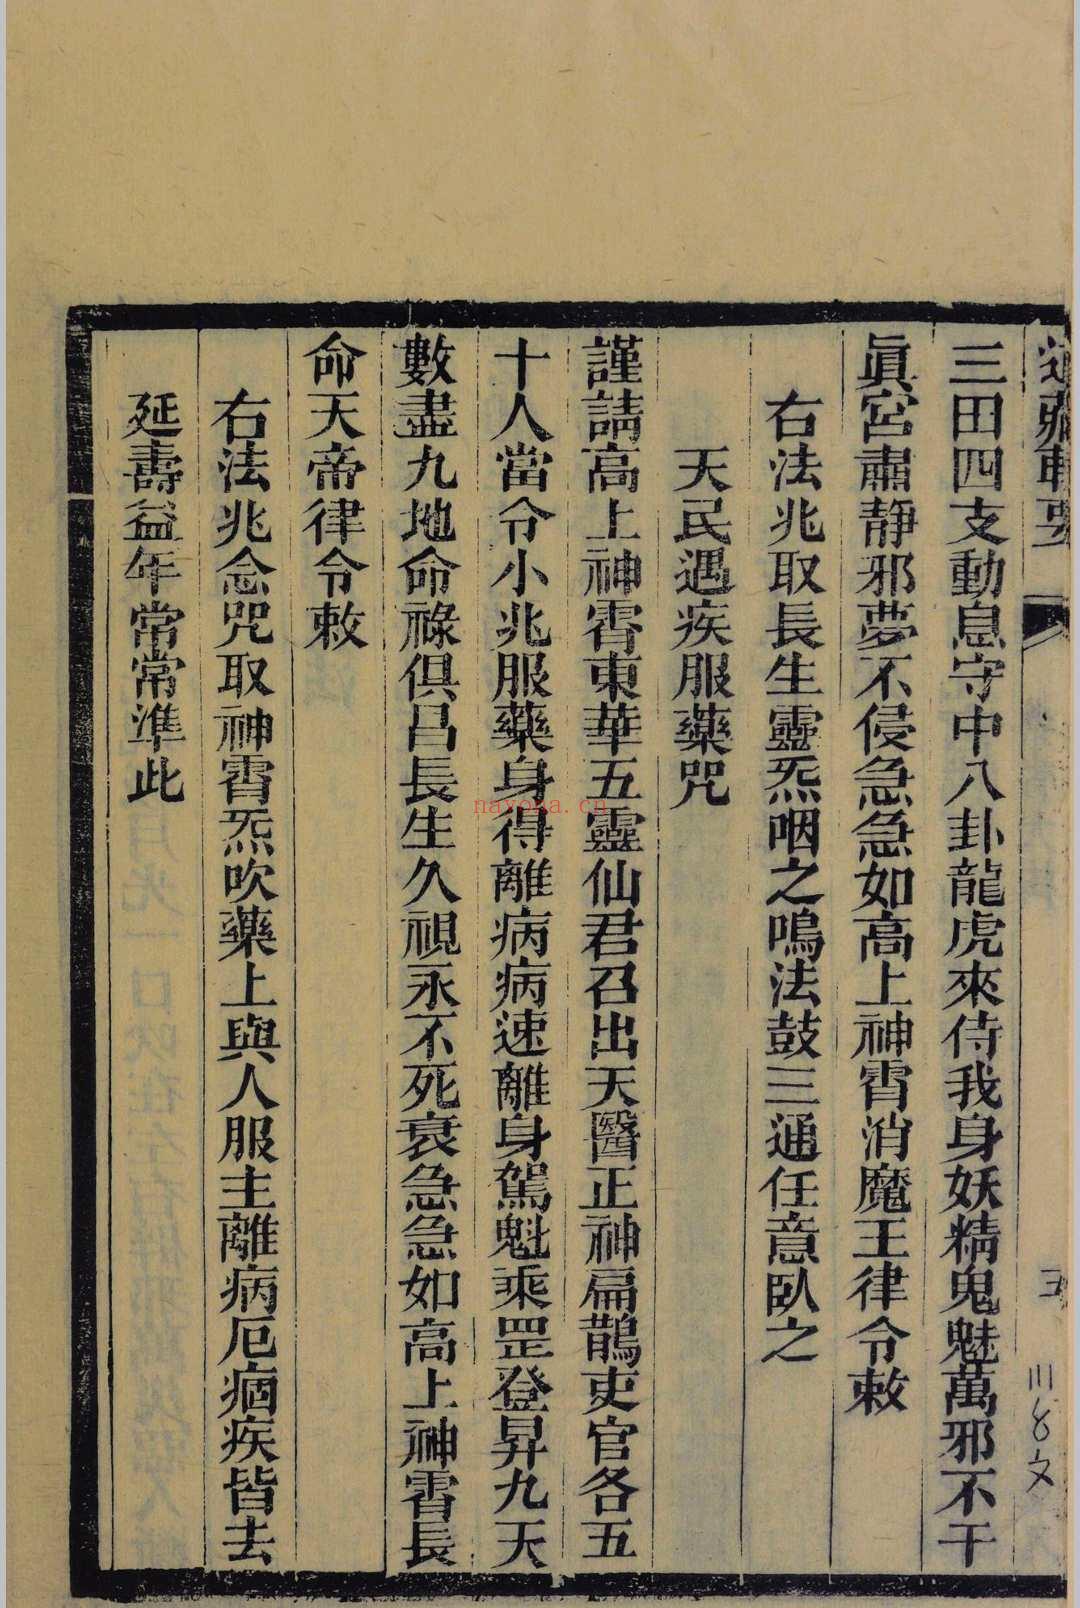 道藏輯要
三田四支動息守中八卦龍虎來侍我身妖精鬼魅萬邪不干
眞宮肅靜邪夢不侵急急如高上神霄消魔王律令敕
右法兆取長生靈炁咽之鳴法鼓三通任意臥之
天民遇疾服藥咒
謹請高上神霄東華五靈仙君召出天醫正神扁鵲吏官各五
十人當令小兆服藥身得離病病速離身駕魁乘罡登昇九天
數盡九地命祿俱昌長生久視永不死衰急急如高上神霄長
命天帝律令敕
右法兆念咒取神霄炁吹藥上與人服主離病厄痼疾皆去
延壽益年常常準此
nayona.cn